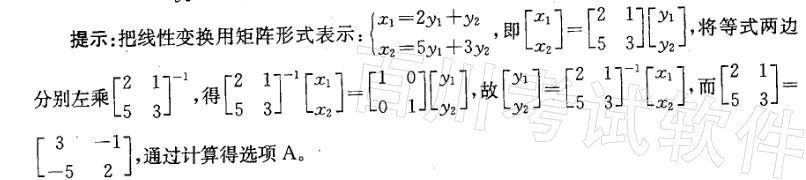 提示:把线性变换用矩阵形式表示:{x₁=2y₁+y₂ x₂=5y₁+3y₂,即[x₁ x₂]=[2 1 5 3][y₁ y₂],将等式两边
分别左乘[2 1 5 3]⁻¹,得[2 1 5 3]⁻¹[x₁ x₂]=[1 0 0 1][y₁ y₂],故[y₁ y₂]=[2 1 5 3]⁻¹[x₁ x₂],而[2 1 5 3]=
[3 -1 -5 2],通过计算得选项 A。
百川考试软件